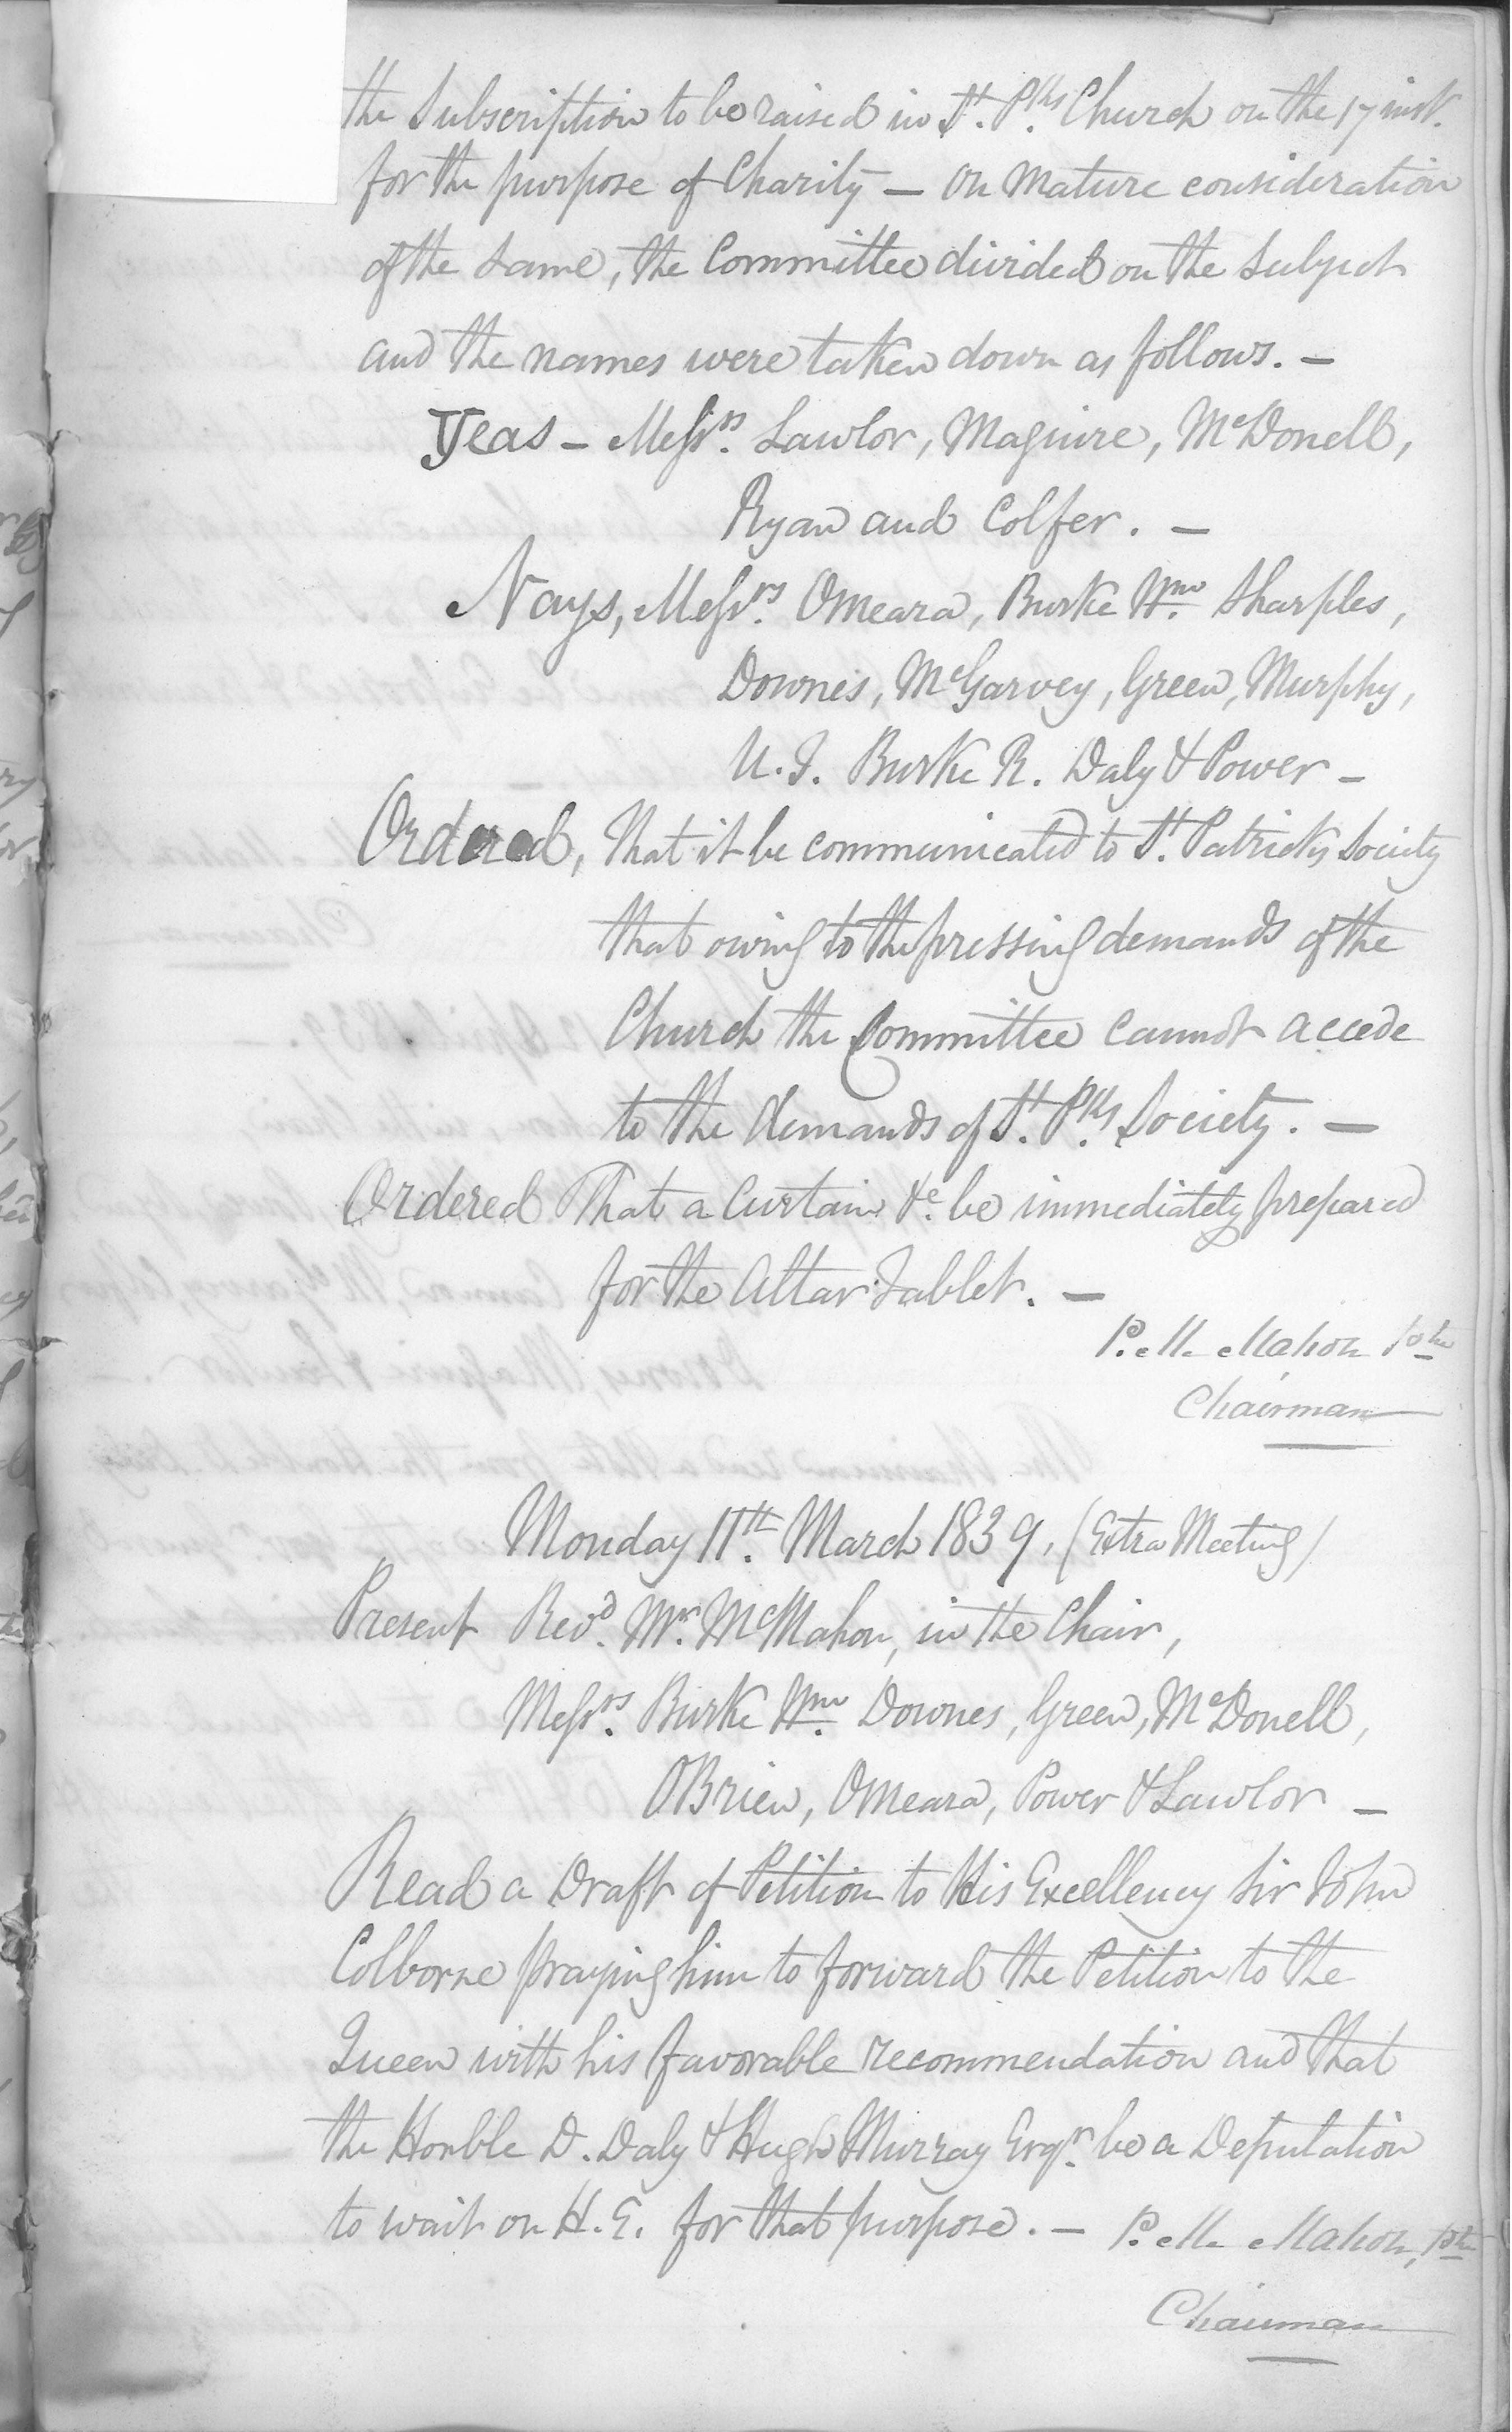 the Subscription to be raised in St. Pks Church on the 17 inst.
for the purpose of Charity — On mature consideration
of the same, the Committee divided on the subject
and the names were taken down as follows. —
Yeas — Messrs. Lawlor, Maguire, McDonell,
Ryan and Colfer. —
Nays, Messrs. OMeara, Burke Wm. Sharples,
Downes, McGarvey, Green, Murphy,
U.J. Burke R. Daly & Power —
Ordered, That it be communicated to St. Patricks Society
that owing to the pressing demands of the
Church the Committee cannot accede
to the demands of St. Pks Society. —
Ordered That a Curtain &c. be immediately prepared
for the Altar Tablet. —
P. Mc Mahon Ptre
Chairman
Monday 11th. March 1839, (Extra Meeting)
Present Revd. Mr. McMahon, in the Chair,
Messrs. Burke Wm. Downes, Green, McDonell,
OBrien, OMeara, Power & Lawlor —
Read a Draft of Petition to His Excellency Sir John
Colborne praying him to forward the Petition to the
Queen with his favorable recommendation and that
the Honble D. Daly & Hugh Murray Esqr. be a Deputation
to wait on H.E. for that purpose. — P. Mc Mahon, Ptre
Chairman